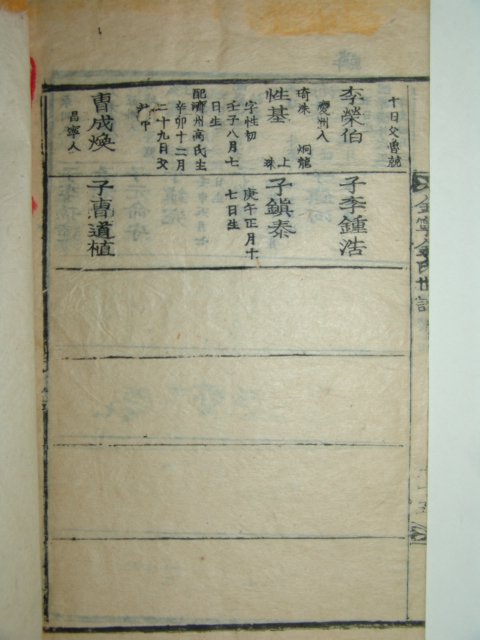 十日父曹兢
李榮伯
慶州人
琦洙 炯龍
性基 上 洙
字性初
壬子八月七
日生
配濟州高氏生
辛卯十二月
二十九日父
曺成煥
昌寧人
子李鍾浩
子鎭泰
庚午正月十
七日生
子曺道植
氏世譜